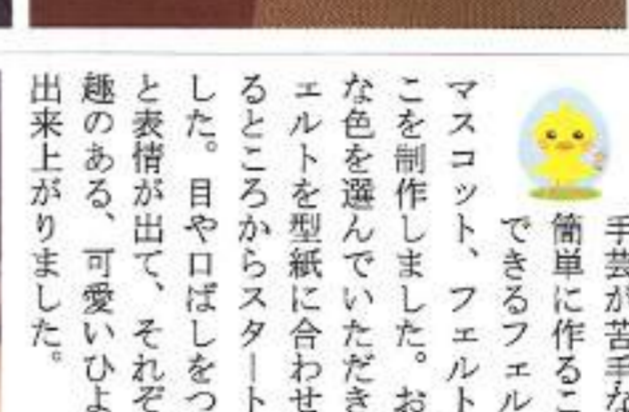 手芸が苦手な
簡単に作るこ
できるフェル
マスコット、フェルト
こを制作しました。お
な色を選んでいただき
ェルトを型紙に合わせ
るところからスタート
した。目や口ばしをつ
と表情が出て、それぞ
趣のある、可愛いひよ
出来上がりました。